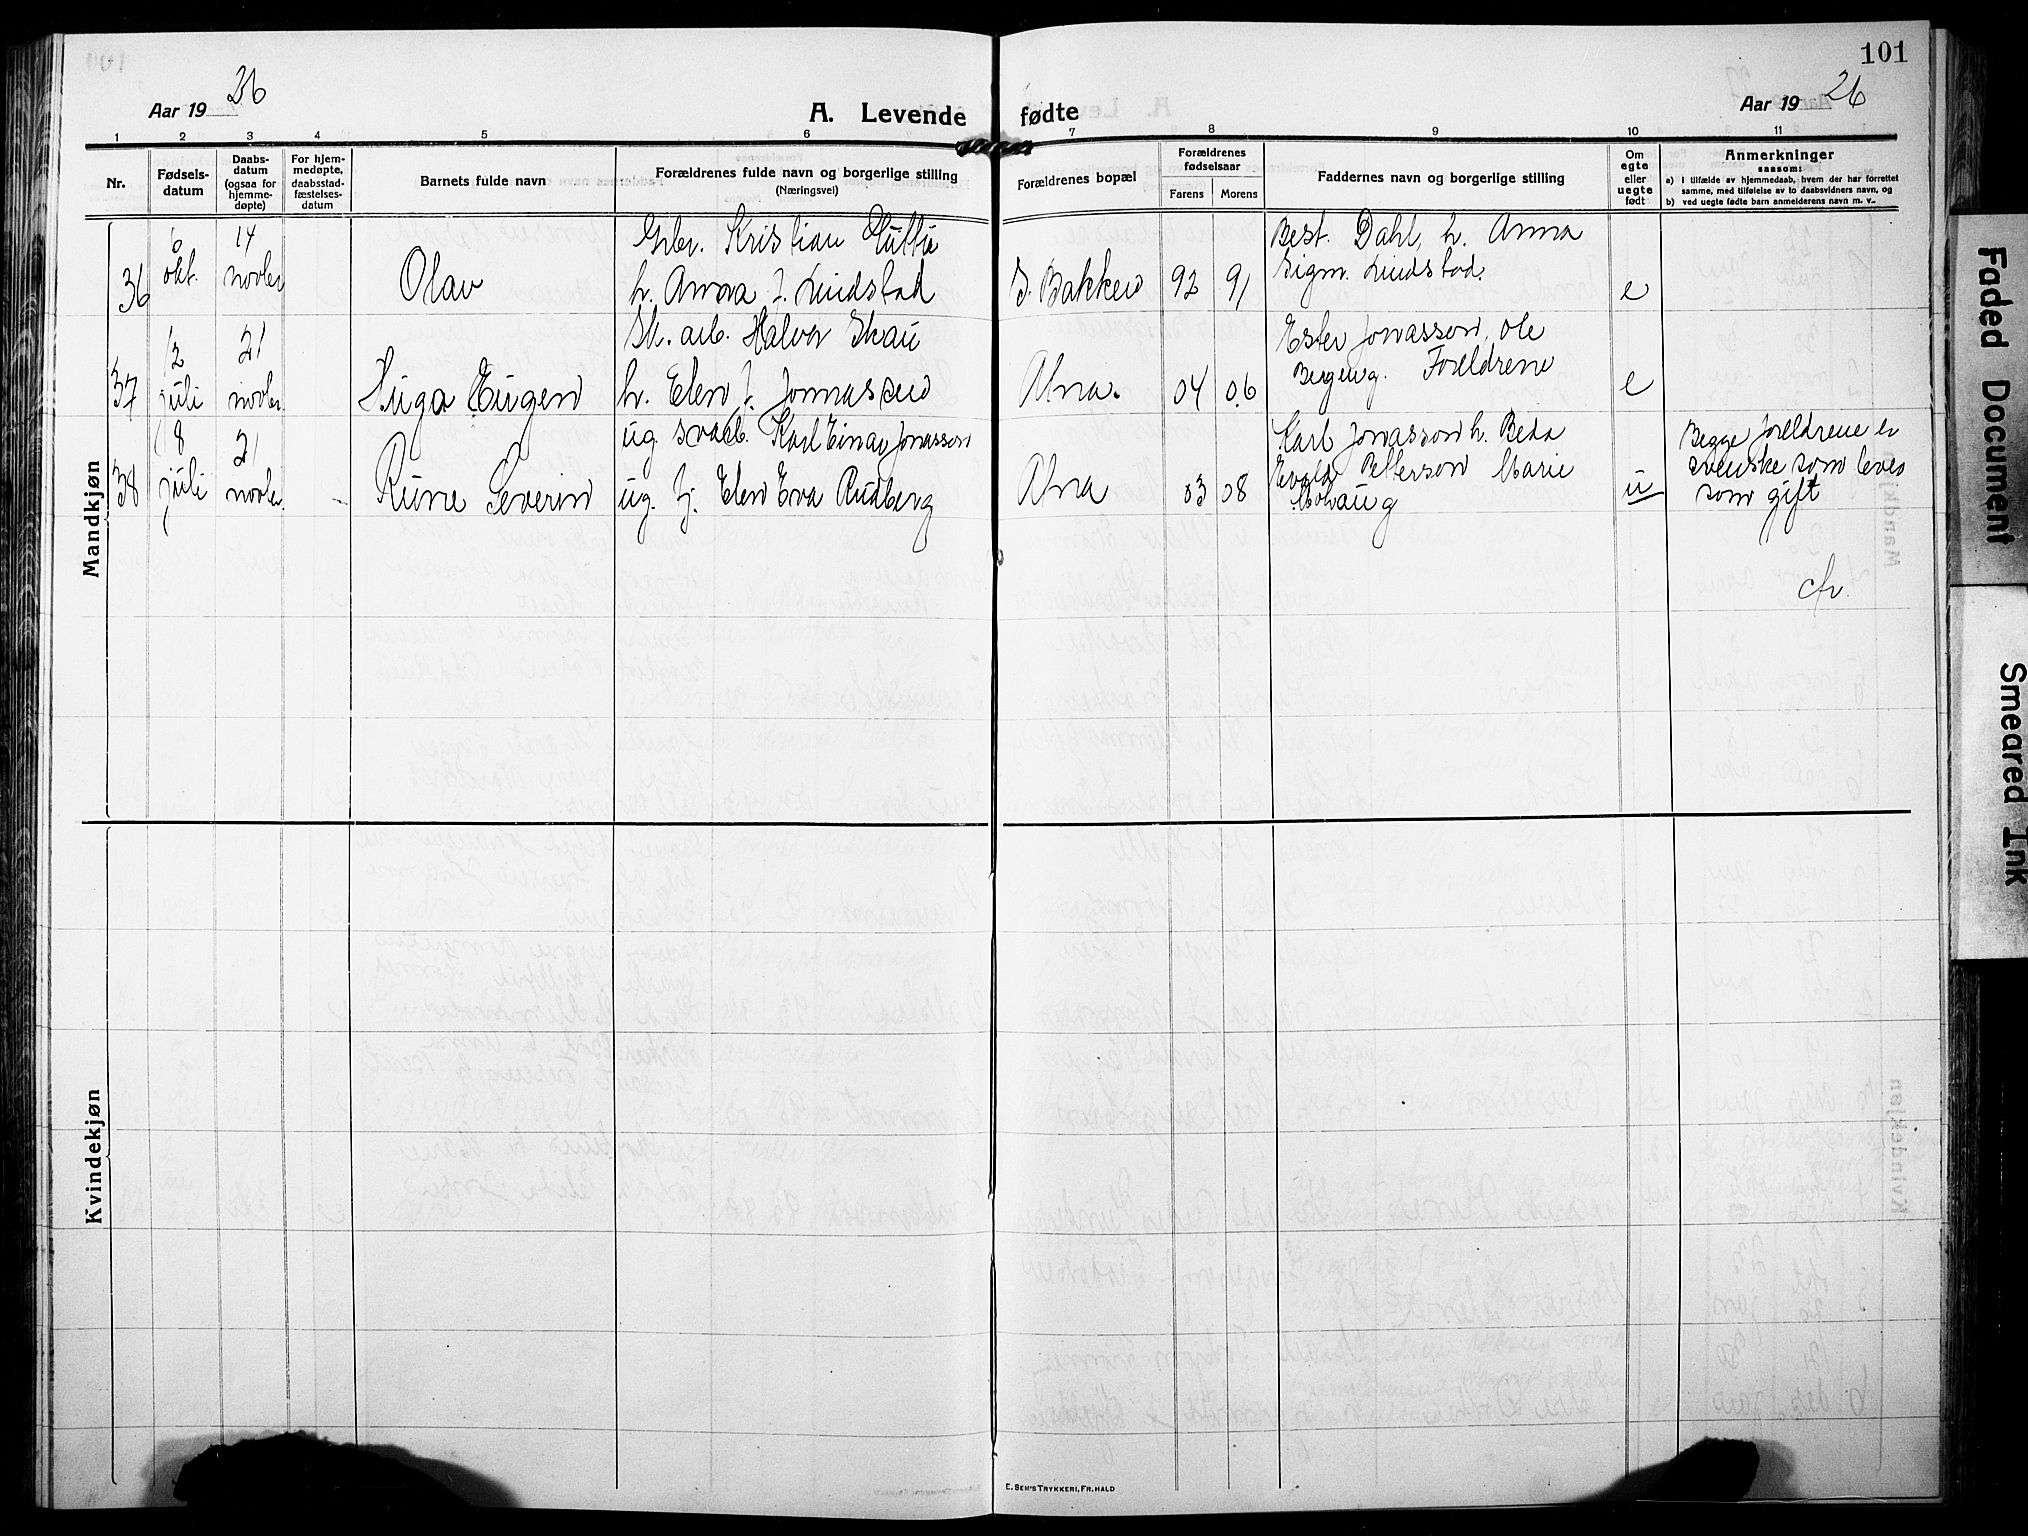 101
Aar 19 26
A. Levende fødte
Aar 19 26
1 2 3 4 5 6 7 8 9 10 11
Nr.
Fødsels-
datum
Daabs-
datum
(ogsaa for
hjemme-
døpte)
For hjem-
medøpte,
daabsstad-
fæstelses-
datum
Barnets fulde navn
Forældrenes fulde navn og borgerlige stilling
(Næringsvei)
Forældrenes bopæl
Forældrenes
fødselsaar
Farens Morens
Faddernes navn og borgerlige stilling
Om
egte
eller
uegte
født
Anmerkninger
saasom:
a) i tilfælde av hjemmedaab, hvem der har forrettet
samme, med tilføielse av to daabsvidners navn, og
b) ved uegte fødte barn anmelderens navn m. v.
Mandkjøn
36
6
okt.
14
novbr
Olav
Gbr. Kristian
h. Anna f. Lindstad
S. Bakken
92 91
Best. Dahl, h. Anna
Sigm. Lindstad.
e
37
12
juli
21
novbr.
Hugo Eugen
Sk. arb. Halvor Skau
h. Elen f. Jonassen
Alna.
04 06
Ester Jonasson, Ole
Foreldrene
e
38
18
juli
21
novbr.
Rune Severin
ug. Karl Einar Jonasson
ug. tj. Elen Eva Rudberg
Alna
03 08
Karl Jonasson h. Beda
Petterson Marie
u
Begge foreldrene er
svenske som leves
som gift
cfr.
Kvindekjøn
E. SEM'S TRYKKERI, FR.HALD
Faded Document
Smeared Ink